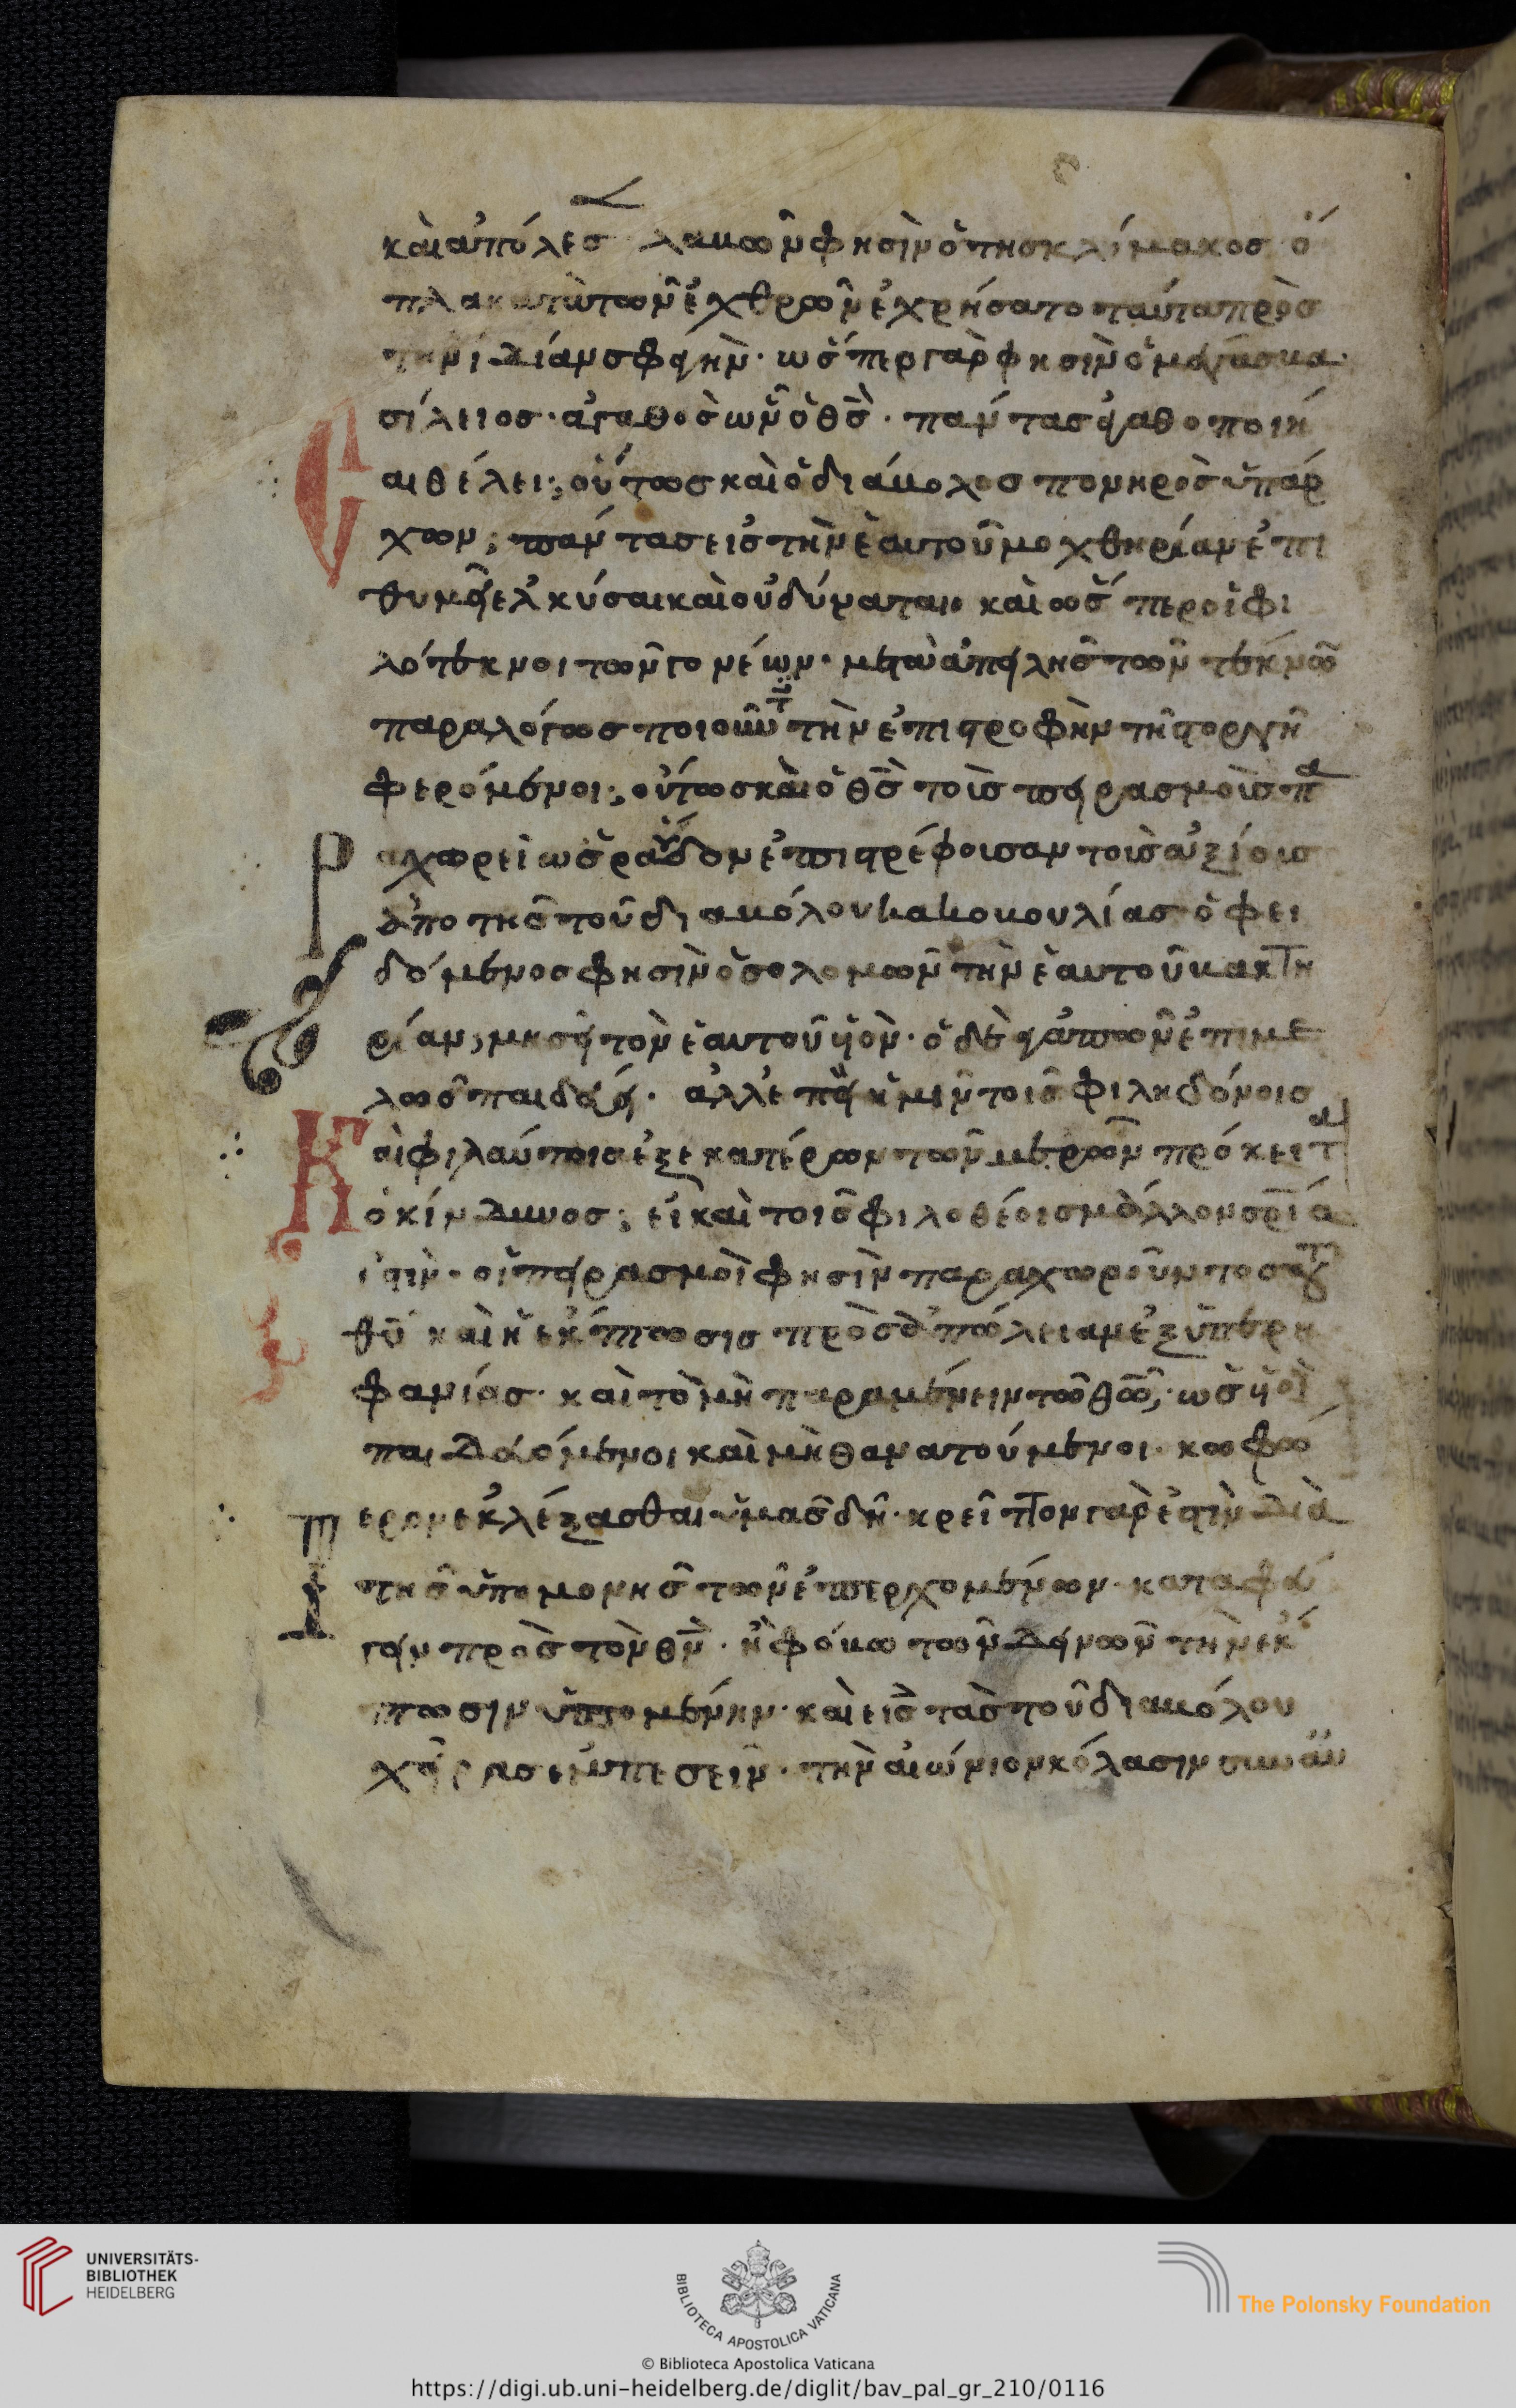 καὶ ἀπόλεσ λαβὼν φησὶν ὁ τῆσ κλίμακοσ ὅ
κατὰ τῶν ἐχθρῶν ἐχρήσατο ταῦτα πρὸσ
τὴν ἰδίαν σφαγὴν· ὥσπερ γὰρ φησὶν ὁ μέγασ βα
σίλειοσ· ἀγαθὸσ ὢν ὁ θ̅σ̅· πάντασ ἀγαθοποιῆ
σαι θέλει· οὕτωσ καὶ ὁ διάβολοσ πονηρὸσ ὑπάρ
χων, πάντασ εἰσ τὴν ἑαυτοῦ μοχθηρίαν ἐπι
θυμεῖ ἑλκύσαι καὶ οὐ δύναται· καὶ ὥσπερ οἱ φι
λότεκνοι τῶν γονέων· μετὰ ἀπειλῆσ τῶν τέκνω̅
παραλόγωσ ποιούντ τὴν ἐπιστροφὴν τῆ στοργῆ
φερόμενοι· οὕτωσ καὶ ὁ θ̅σ̅ τοῖσ πειρασμοῖσ πα
Ραχωρεῖ ὡσ ῥάβδον ἐπιστρέφοισαν τοῖσ ἀξίοισ
ἀπὸ τῆσ τοῦ διαβόλου κακοβουλίασ· ὁ φει
δόμενοσ φησὶν ὁ σολομὼν τὴν ἑαυτοῦ βακτη
ρίαν, μισεῖ τὸν ἑαυτοῦ υἱόν· ὁ δὲ ἀγαπῶν ἐπιμε
λῶσ παιδεύει· ἀλλ' ἐπεὶ ἡμῖν τοῖσ φιληδόνοισ
Καὶ φιλαύτοισ ἐξ ἑκατέρων τῶν μερῶν πρόκειτ
ὁ κίνδυνοσ· εἰ καὶ τοῖσ φιλοθέοισ μᾶλλον σ̅ρ̅ία
ἐστὶν· οἱ πειρασμοὶ φησὶν παραχωροῦντοσ τοῦ
θ̅υ̅ καὶ ἡ ἔκπτωσισ πρὸσ ἀπώλειαν ἐξ ὑπερη
φανίασ· καὶ τὸ μὴ παραμένειν τῶ θ̅ῶ̅· ὡσ υἱοὶ
παιδευόμενοι καὶ μὴ θανατούμενοι· κωφό
Τερον ἐκλέξασθαι ὑμᾶσ δεῖ· κρεῖττον γὰρ ἐστὶν διὰ
τῆσ ὑπομονῆσ τῶν ἐπερχομένων· καταφυ
γεῖν πρὸσ τὸν θ̅ν̅· ἢ φόβω τῶν δεινῶν τὴν ἔκ
πτωσιν ὑπομένειν· καὶ εἰσ τὰσ τοῦ διαβόλου
χεῖρασ ἐμπεσεῖν· τὴν αἰώνιον κόλασιν σὺν αὐ
UNIVERSITÄTS-
BIBLIOTHEK
HEIDELBERG
BIBLIOTECA APOSTOLICA VATICANA
The Polonsky Foundation
© Biblioteca Apostolica Vaticana
https://digi.ub.uni-heidelberg.de/diglit/bav_pal_gr_210/0116